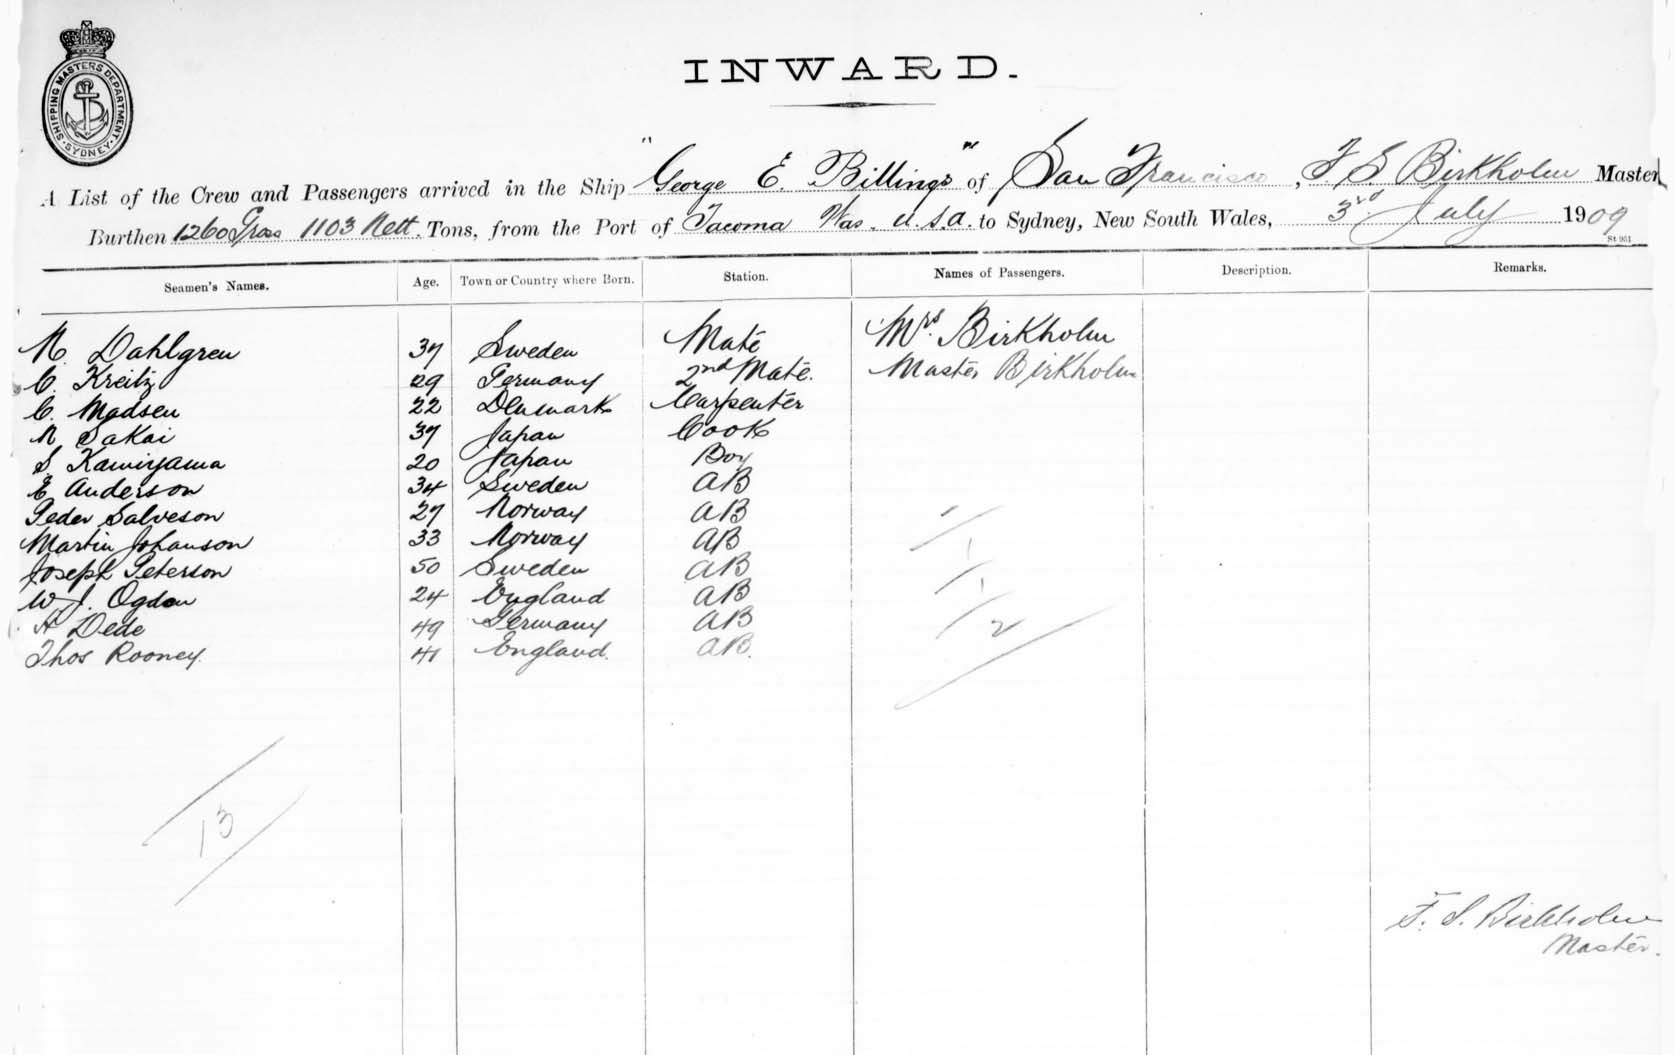 SHIPPING MASTERS DEPARTMENT
SYDNEY
INWARD.
A List of the Crew and Passengers arrived in the Ship "George E. Billings" of San Francisco, F. S. Birkholm Master
Burthen 1260 Gross 1103 Nett. Tons, from the Port of Tacoma Was. U.S.A. to Sydney, New South Wales, 3rd July 1909
St 951
Seamen's Names. Age. Town or Country where Born. Station. Names of Passengers. Description. Remarks.
N. Dahlgren 37 Sweden Mate Mrs. Birkholm
C. Kreitz 29 Germany 2nd Mate. Master Birkholm
C. Madsen 22 Denmark Carpenter
N Sakai 37 Japan Cook
S. Kamiyama 20 Japan Boy
E Anderson 34 Sweden AB
Peder Salveson 27 Norway AB
Martin Johanson 33 Norway AB
Joseph Peterson 50 Sweden AB
W. J. Ogden 24 England AB
H Dede 49 Germany AB
Thos Rooney. 41 England. AB.
1
1
2
13
F. S. Birkholm
Master.